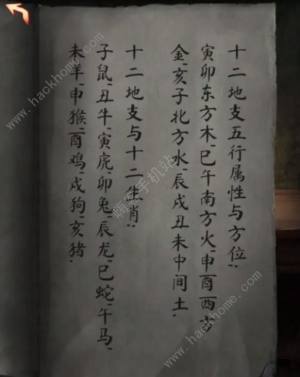 十二地支五行属性与方位:
寅卯东方木,巳午南方火,申酉西方
金,亥子北方水,辰戌丑未中间土.
十二地支与十二生肖:
子鼠,丑牛,寅虎,卯兔,辰龙,巳蛇,午马,
未羊,申猴,酉鸡,戌狗,亥猪.
www.hackhome.com
www.hackhome.com